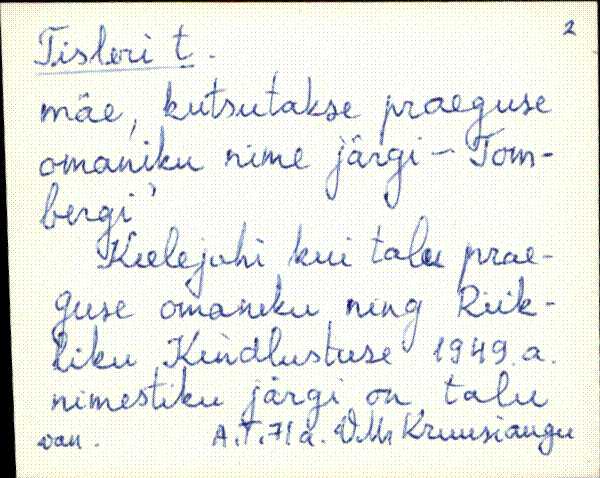 2
Tisleri t.
mäe, kutsutakse praeguse
omaniku nime järgi - Tom-
bergi'
Keelejuhi kui talu prae-
guse omaniku ning Riik-
liku Kindlustuse 1949. a.
nimestiku järgi on talu
van. A.T. 71 a. V.M. Kruusiaugu